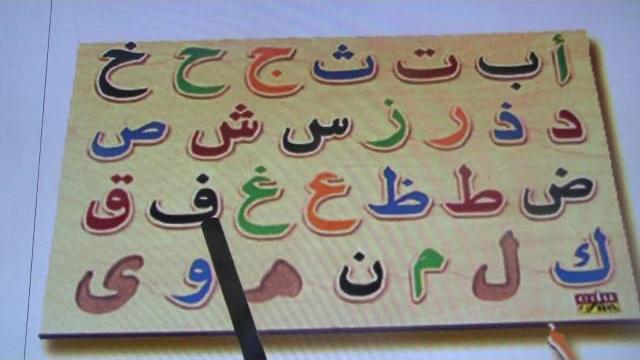 أ ب ت ث ج ح خ
د ذ ر ز س ش ص
ض ط ظ ع غ ف ق
ك ل م ن ه و ى
edu